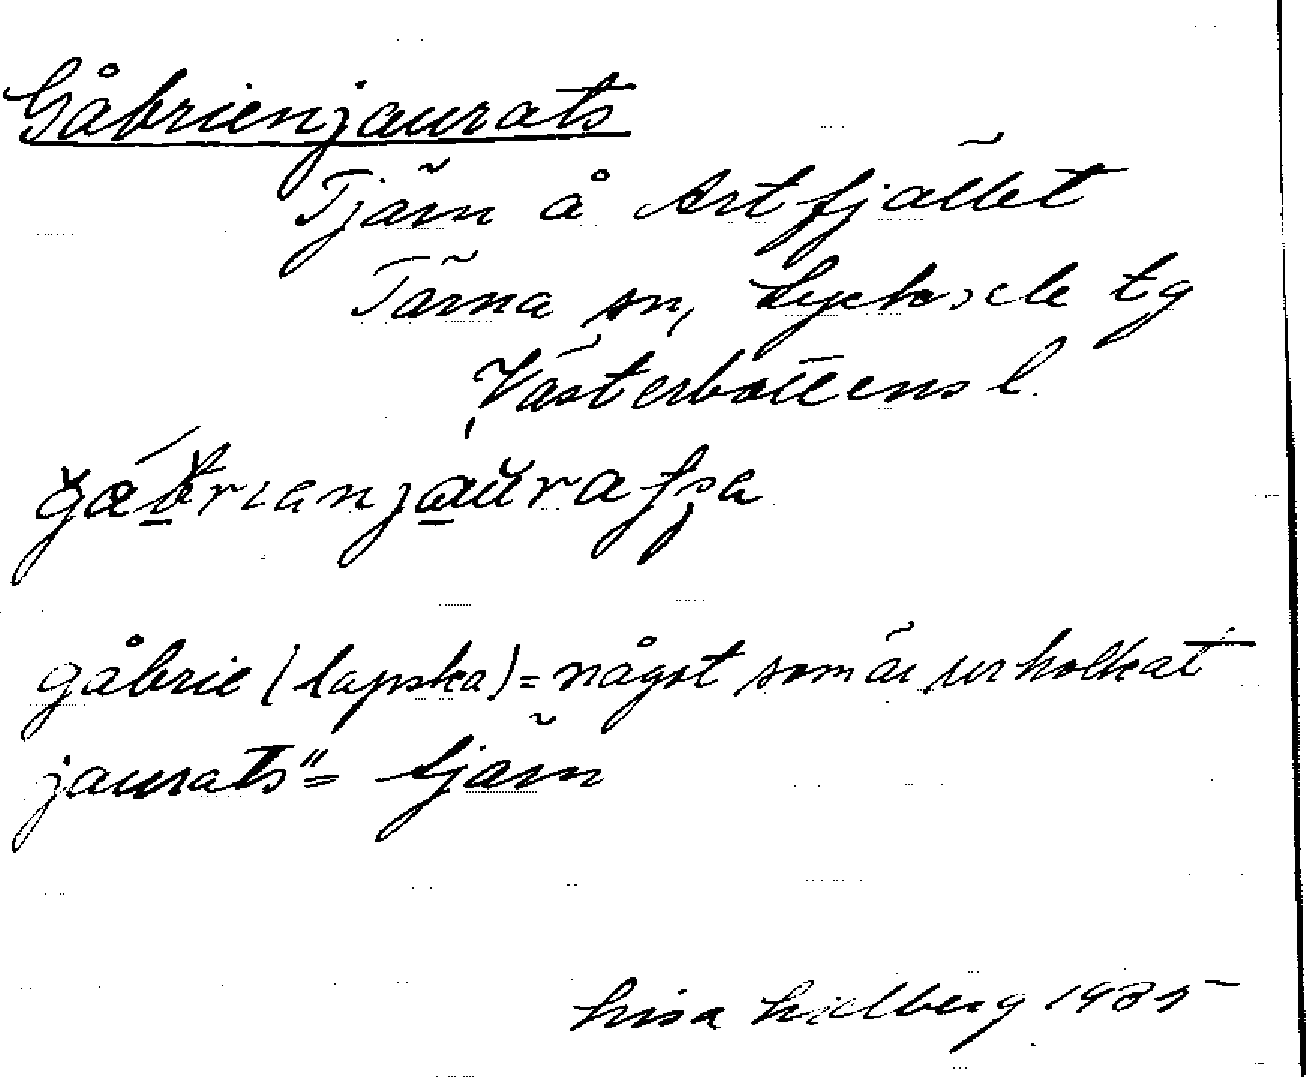 Gåbrienjaurats
Tjärn å Artfjället
Tärna sn, Lycksele tg
Västerbottens l.
gåbrie (lapska) = något som är urholkat
jaurats " = tjärn
Lisa Lidberg 1935